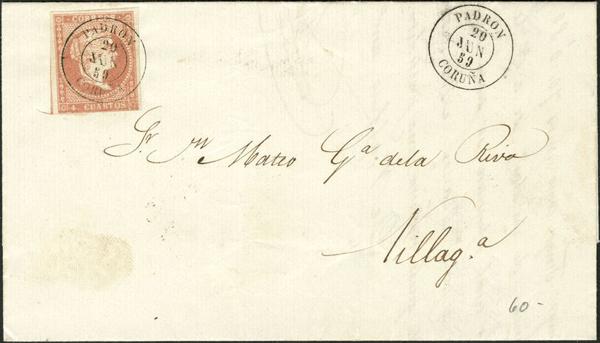 CORREOS
PADRON
20
JUN
59
4 CUARTOS
PADRON
20
JUN
59
CORUÑA
Sr. Dn Mateo Ga de la Riva
Villag.a
60-